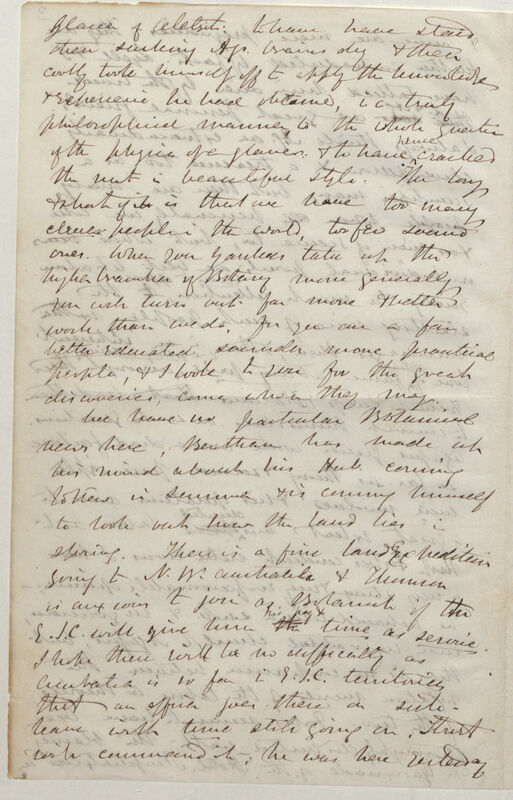 glance of
then sucking Ap. brains dry & then
coolly took himself off to apply the knowledge
& experience he had obtained, in a truly
philosophical manner, to the whole question
of the physics of glaciers. & to have hence cracked
the nut in beautiful style. The long
& short of it is that we have too many
clever people in the world, too few sound
ones. When you Yankees take up the
higher branches of Botany more generally
you will turn out far more & better
work than we do, for you are a far
better educated, sounder more practical
people, & I look to you for the great
discoveries, come when they may.
We have no particular Botanical
news here, Bentham has made up
his mind about his Herb. coming
to Kew in summer & is coming himself
to look out how the land lies in
spring. There is a fine land Expedition
going to N.W. Australia & Thomson
is anxious to join as Botanist if the
E.I.C. will give him his pay & time as service.
I hope there will be no difficulty as
Australia is so far in E.I.C. territories
that an officer goes there on sick-
leave with time still going on, Sturt
will command it, he was here yesterday